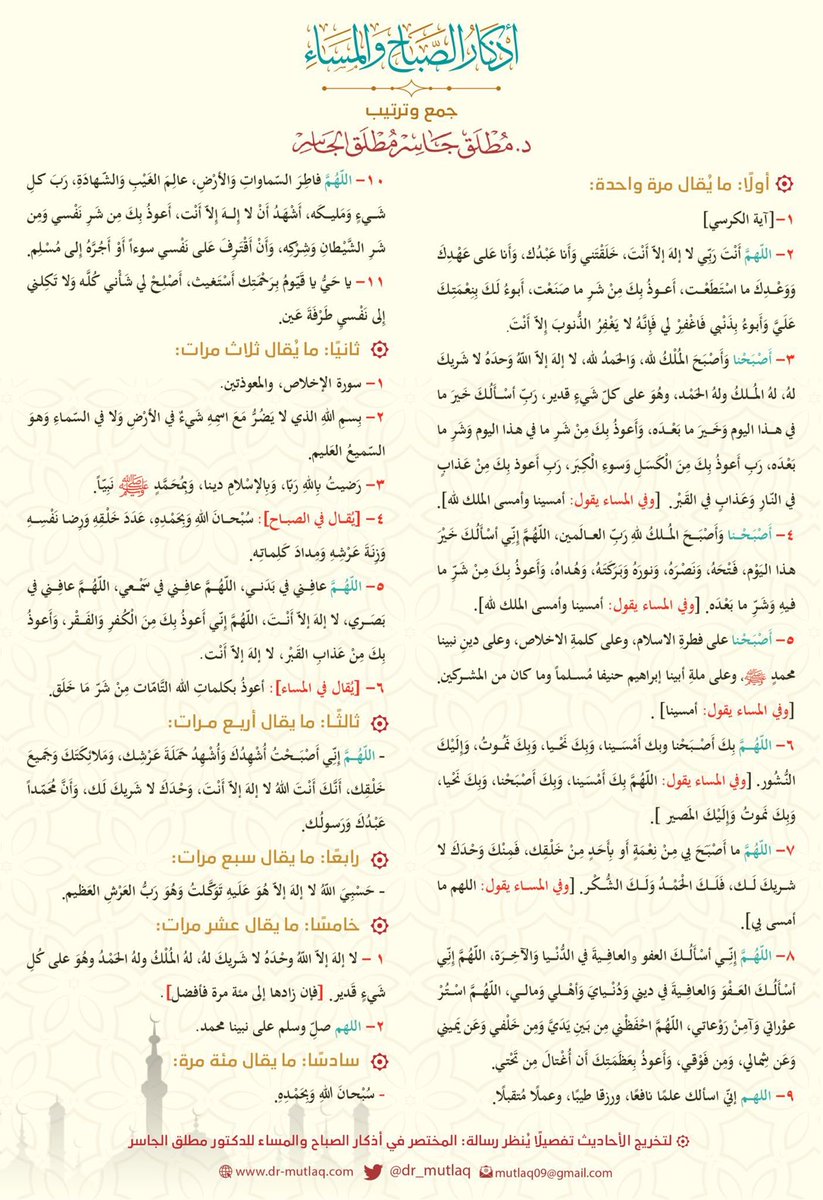 أذكار الصَّبَاحِ وَالمَسَاءِ
جمع وترتيب
د. مُطْلَق جَاسِر مُطْلَق الجَاسِر
أولًا: ما يُقال مرة واحدة:
١- [آية الكرسي]
٢- اللّهمَّ أَنْتَ رَبِّي لا إلهَ إلاّ أَنْتَ، خَلَقْتَني وَأنا عَبْدُك، وَأنا عَلى عَهْدِكَ
وَوَعْدِكَ ما اسْتَطَعْت، أَعـوذُ بِكَ مِنْ شَرِ ما صَنَعْت، أَبوءُ لَكَ بِنِعْمَتِكَ
عَلَيَّ وَأَبوءُ بِذَنْبي فَاغْفِرْ لي فَإِنَّهُ لا يَغْفِرُ الذُّنوبَ إِلاّ أَنْتَ.
٣- أَصْبَحْنا وَأَصْبَحَ المُلْكُ لله، وَالحَمدُ لله، لا إلهَ إلاّ اللّهُ وَحدَهُ لا شَريكَ
لهُ، لهُ المُـلكُ ولهُ الحَمْد، وهُوَ على كلّ شَيءٍ قدير، رَبِّ أسْـأَلُـكَ خَيرَ ما
في هـذا اليوم وَخَـيرَ ما بَعْـدَه، وَأَعوذُ بِكَ مِنْ شَرِ ما في هذا اليوم وَشَرِ ما
بَعْدَه، رَبِ أَعوذُ بِكَ مِنَ الْكَسَلِ وَسوءِ الْكِبَر، رَبِ أَعوذ بِكَ مِنْ عَذابٍ
في النّارِ وَعَذابٍ في القَبْر. [وفي المساء يقول: أمسينا وأمسى الملك لله].
٤- أَصْبَحْـنا وَأَصْبَـحَ المُـلكُ للهِ رَبِّ العـالَمين، اللّهُمَّ إِنِّي أسْأَلُكَ خَيْرَ
هذا اليَوْم، فَتْحَهُ، وَنَصْرَهُ، وَنورَهُ وَبَرَكَتَهُ، وَهُداهُ، وَأَعوذُ بِكَ مِنْ شَرِّ ما
فيهِ وَشَرِّ ما بَعْدَه. [وفي المساء يقول: أمسينا وأمسى الملك لله].
٥- أَصْبَحْنا على فطرةِ الاسلام، وعلى كلمةِ الاخلاص، وعلى دينِ نبينا
محمدٍ ﷺ، وعلى ملةِ أبينا إبراهيم حنيفا مُسـلماً وما كان من المشـركين.
[وفي المساء يقول: أمسينا] .
٦- اللّهُـمَّ بِكَ أَصْـبَـحْنا وبك أمْسَـينا، وَبِكَ نَحْـيا، وَبِكَ نَمُـوتُ، وَإِلَيْكَ
النُّشُور. [وفي المساء يقول: اللّهُمَّ بِكَ أَمْسَينا، وَبِكَ أَصْبَحْنا، وَبِكَ نَحْيا،
وَبِكَ نَموتُ وَإِلَيْكَ المَصير ].
٧- اللّهُمَّ ما أَصْبَحَ بي مِنْ نِعْمَةٍ أَو بِأَحَدٍ مِنْ خَلْقِك، فَمِنْكَ وَحْدَكَ لا
شـريكَ لَـك، فَلَـكَ الْحَمْـدُ وَلَـكَ الشُّـكْر. [وفي المسـاء يقول: اللهم ما
أمسى بي].
٨- اللّهُـمَّ إِنِّـي أسْأَلُـكَ العفو والعافِـيةَ في الدُّنْـيا وَالآخِـرَة، اللّهُمَّ إِنِّي
أسْأَلُـكَ العَـفْوَ وَالعافِيـةَ في ديني وَدُنْيـايَ وَأهْـلي وَمالـي، اللّهُـمَّ اسْـتُرْ
عوْراتي وَآمِنْ رَوْعاتي، اللّهُمَّ احْفَظْني مِن بَينِ يَدَيَّ وَمِن خَلْفي وَعَن يَميني
وَعَن شِمالي، وَمِن فَوْقي، وَأَعوذُ بِعَظَمَتِكَ أَن أُغْتالَ مِن تَحْتي.
٩- اللهـم إنّي اسألك علمًا نافعًا، ورزقا طيبًا، وعملًا مُتقبلًا.
١٠- اللّهُمَّ فاطِرَ السّماواتِ وَالأرْضِ، عالِمَ الغَيْبِ وَالشّهادَةِ، رَبَ كـلِ
شَـيءٍ وَمَليـكَه، أَشْهَدُ أَنْ لا إِلـهَ إِلاّ أَنْت، أَعوذُ بِكَ مِن شَرِ نَفْسي وَمِن
شَرِ الشَّيْطانِ وَشِرْكِه، وَأَنْ أَقْتَرِفَ عَلى نَفْسي سوءاً أَوْ أَجُرَّهُ إِلى مُسْلِم.
١١- يا حَيُّ يا قَيّومُ بِرَحْمَتِك أَسْتَغيث، أَصْلِحْ لي شَأْني كُلَّه وَلا تَكِلني
إِلى نَفْسي طَرْفَةَ عَين.
ثانيًا: ما يُقال ثلاث مرات:
١- سورة الإخلاص، والمعوذتين.
٢- بِسمِ اللهِ الذي لا يَضُرُّ مَعَ اسمِهِ شَيءٌ في الأرْضِ وَلا في السّماءِ وَهوَ
السّميعُ العَليم.
٣- رَضيتُ بِاللهِ رَبّا، وَبِالإسْلامِ دينا، وَبِمُحَمَّدٍ ﷺ نَبِيّاً.
٤- [يُقال في الصباح]: سُبْحـانَ اللهِ وَبِحَمْدِهِ، عَدَدَ خَلْقِهِ وَرِضا نَفْسِـهِ
وَزِنَةَ عَرْشِهِ وَمِدادَ كَلِماتِه.
٥- اللّهُـمَّ عافِـني في بَدَنـي، اللّهُـمَّ عافِـني في سَمْـعي، اللّهُـمَّ عافِـني في
بَصَـري، لا إلهَ إلاّ أَنْـتَ، اللّهُمَّ إِنّي أَعوذُ بِكَ مِنَ الْكُفرِ وَالفَـقْر، وَأَعوذُ
بِكَ مِنْ عَذابِ القَبْر، لا إلهَ إلاّ أَنْتَ.
٦- [يُقال في المساء]: أعوذُ بكلماتِ الله التَّامّات مِنْ شَرِّ مَا خَلَق.
ثالثًا: ما يقال أربع مرات:
- اللّهُمَّ إِنِّي أَصْبَـحْتُ أُشْهِدُكَ وَأُشْهِدُ حَمَلَةَ عَرْشِك، وَمَلائِكَتَكَ وَجَميعَ
خَلْقِك، أَنَّكَ أَنْتَ اللهُ لا إلهَ إلاّ أَنْتَ، وَحْدَكَ لا شَريكَ لَك، وَأَنَّ مُحَمّداً
عَبْدُكَ وَرَسولُك.
رابعًا: ما يقال سبع مرات:
- حَسْبِيَ اللّهُ لا إلهَ إلاّ هُوَ عَلَيهِ تَوَكَّلتُ وَهُوَ رَبُّ العَرْشِ العَظيم.
خامسًا: ما يقال عشر مرات:
١ - لا إلهَ إلاّ اللّهُ وحْدَهُ لا شَريكَ لهُ، لهُ المُلْكُ ولهُ الحَمْدُ وهُوَ على كُلِ
شَيءٍ قَدير. [فإن زادها إلى مئة مرة فأفضل].
٢- اللهم صلّ وسلم على نبينا محمد.
سادسًا: ما يقال مئة مرة:
- سُبْحانَ اللهِ وَبِحَمْدِهِ.
لتخريج الأحاديث تفصيلًا يُنظر رسالة: المختصر في أذكار الصباح والمساء للدكتور مطلق الجاسر
www.dr-mutlaq.com @dr_mutlaq mutlaq09@gmail.com